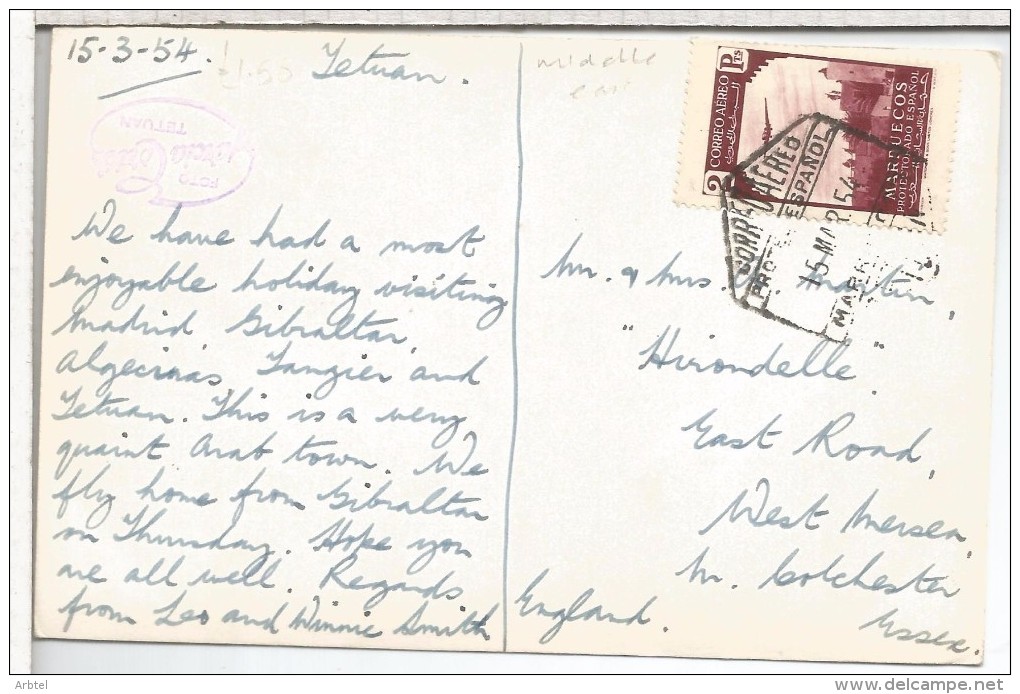 15-3-54.
Tetuan.
£1.50
middle
FOTO
García Cortés
TETUAN
We have had a most
enjoyable holiday visiting
Madrid, Gibraltar,
Algeciras, Tangier and
Tetuan. This is a very
quaint Arab town. We
fly home from Gibraltar
on Thursday. Hope you
are all well. Regards
from Leo and Winnie Smith
2 CORREO AÉREO Pts
MARRUECOS
PROTECTORADO ESPAÑOL
CORREO AEREO
ESPAÑOL
15 MAR 54
Mr. & Mrs. Martin,
"Hirondelle".
East Road,
West Mersea,
Nr. Colchester
Essex.
England.
Arbtel
delcampe.net